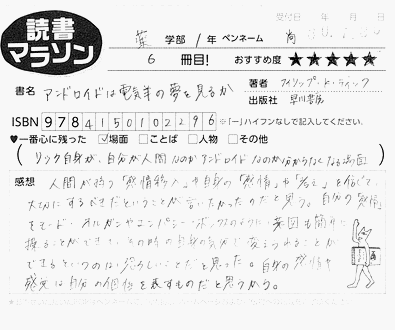 読書
マラソン
受付日 年 月 日
薬 学部 1年 ペンネーム
6 冊目! おすすめ度 ★★★★★
書名 アンドロイドは電気羊の夢を見るか
著者 フィリップ・K・ディック
出版社 早川書房
ISBN 9784150102296 ※「-」ハイフンなしで記入してください。
♥一番心に残った ☑場面 □ことば □人物 □その他
(リック自身が、自分が人間なのかアンドロイドなのか分からなくなる場面)
感想 人間が持つ「感情移入」や自身の「感情」や「考え」を信じて、
大切にするべきだということが言いたかったのだと思う。自分の「感情」
をムード・オルガンやエンパシー・ボックスのように、意図も簡単に
操ることができて、その時の自身の気分で変えられることが
できるというのは恐ろしいことだと思った。自身の感情や
感覚は自分の個性を表すものだと思うから。